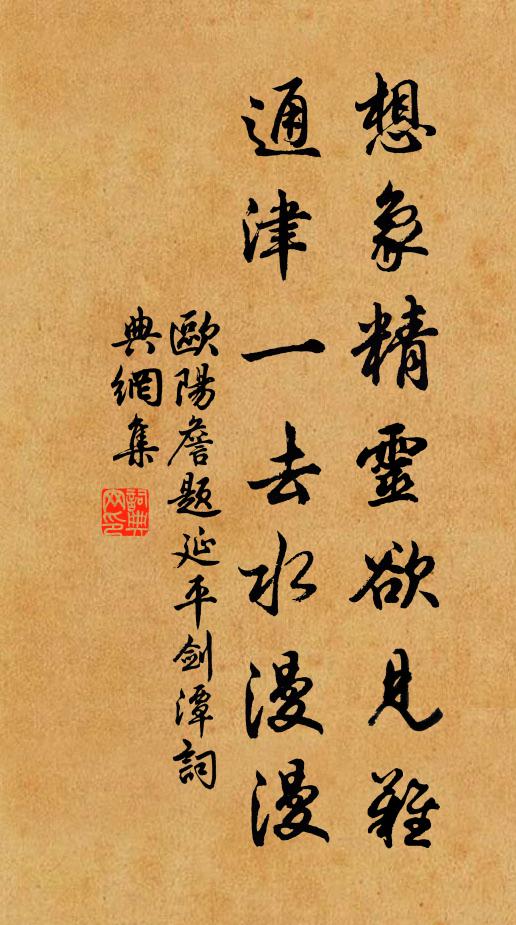 想象精靈欲見難
通津一去水漫漫
歐陽詹題延平劍潭詞
典網集
詞典
网印